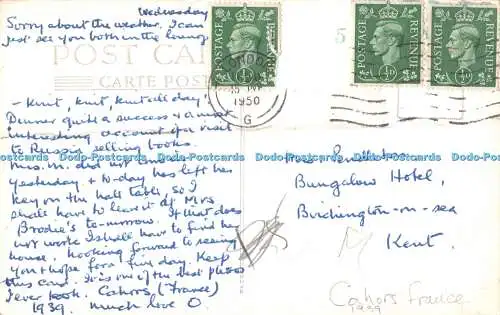 Wednesday
Sorry about the weather. I can
just see you both in the lounge
POST CARD
CARTE POSTALE
- Knit, knit, knit all day!
Dinner quite a success & a most
interesting account of a visit
to Russia selling books.
Mrs. M. did not
yesterday & to-day has left her
key on the hall table, so I
shall have to leave it at Mrs
Brodie's to-morrow. If that does
not work I shall have to find her
house. Looking forward to seeing
you & hope for a fine day. Keep
this card. It is one of the best places
I ever took. Cahors (France)
1939. Much love O.
POSTAGE REVENUE
½D
POSTAGE REVENUE
½D
POSTAGE REVENUE
½D
LONDON
1950
G
5
Mrs
Bungalow Hotel,
Birchington-on-sea
Kent.
Cahors France
1939
Dodo-Postcards Dodo-Postcards Dodo-Postcards Dodo-Postcards